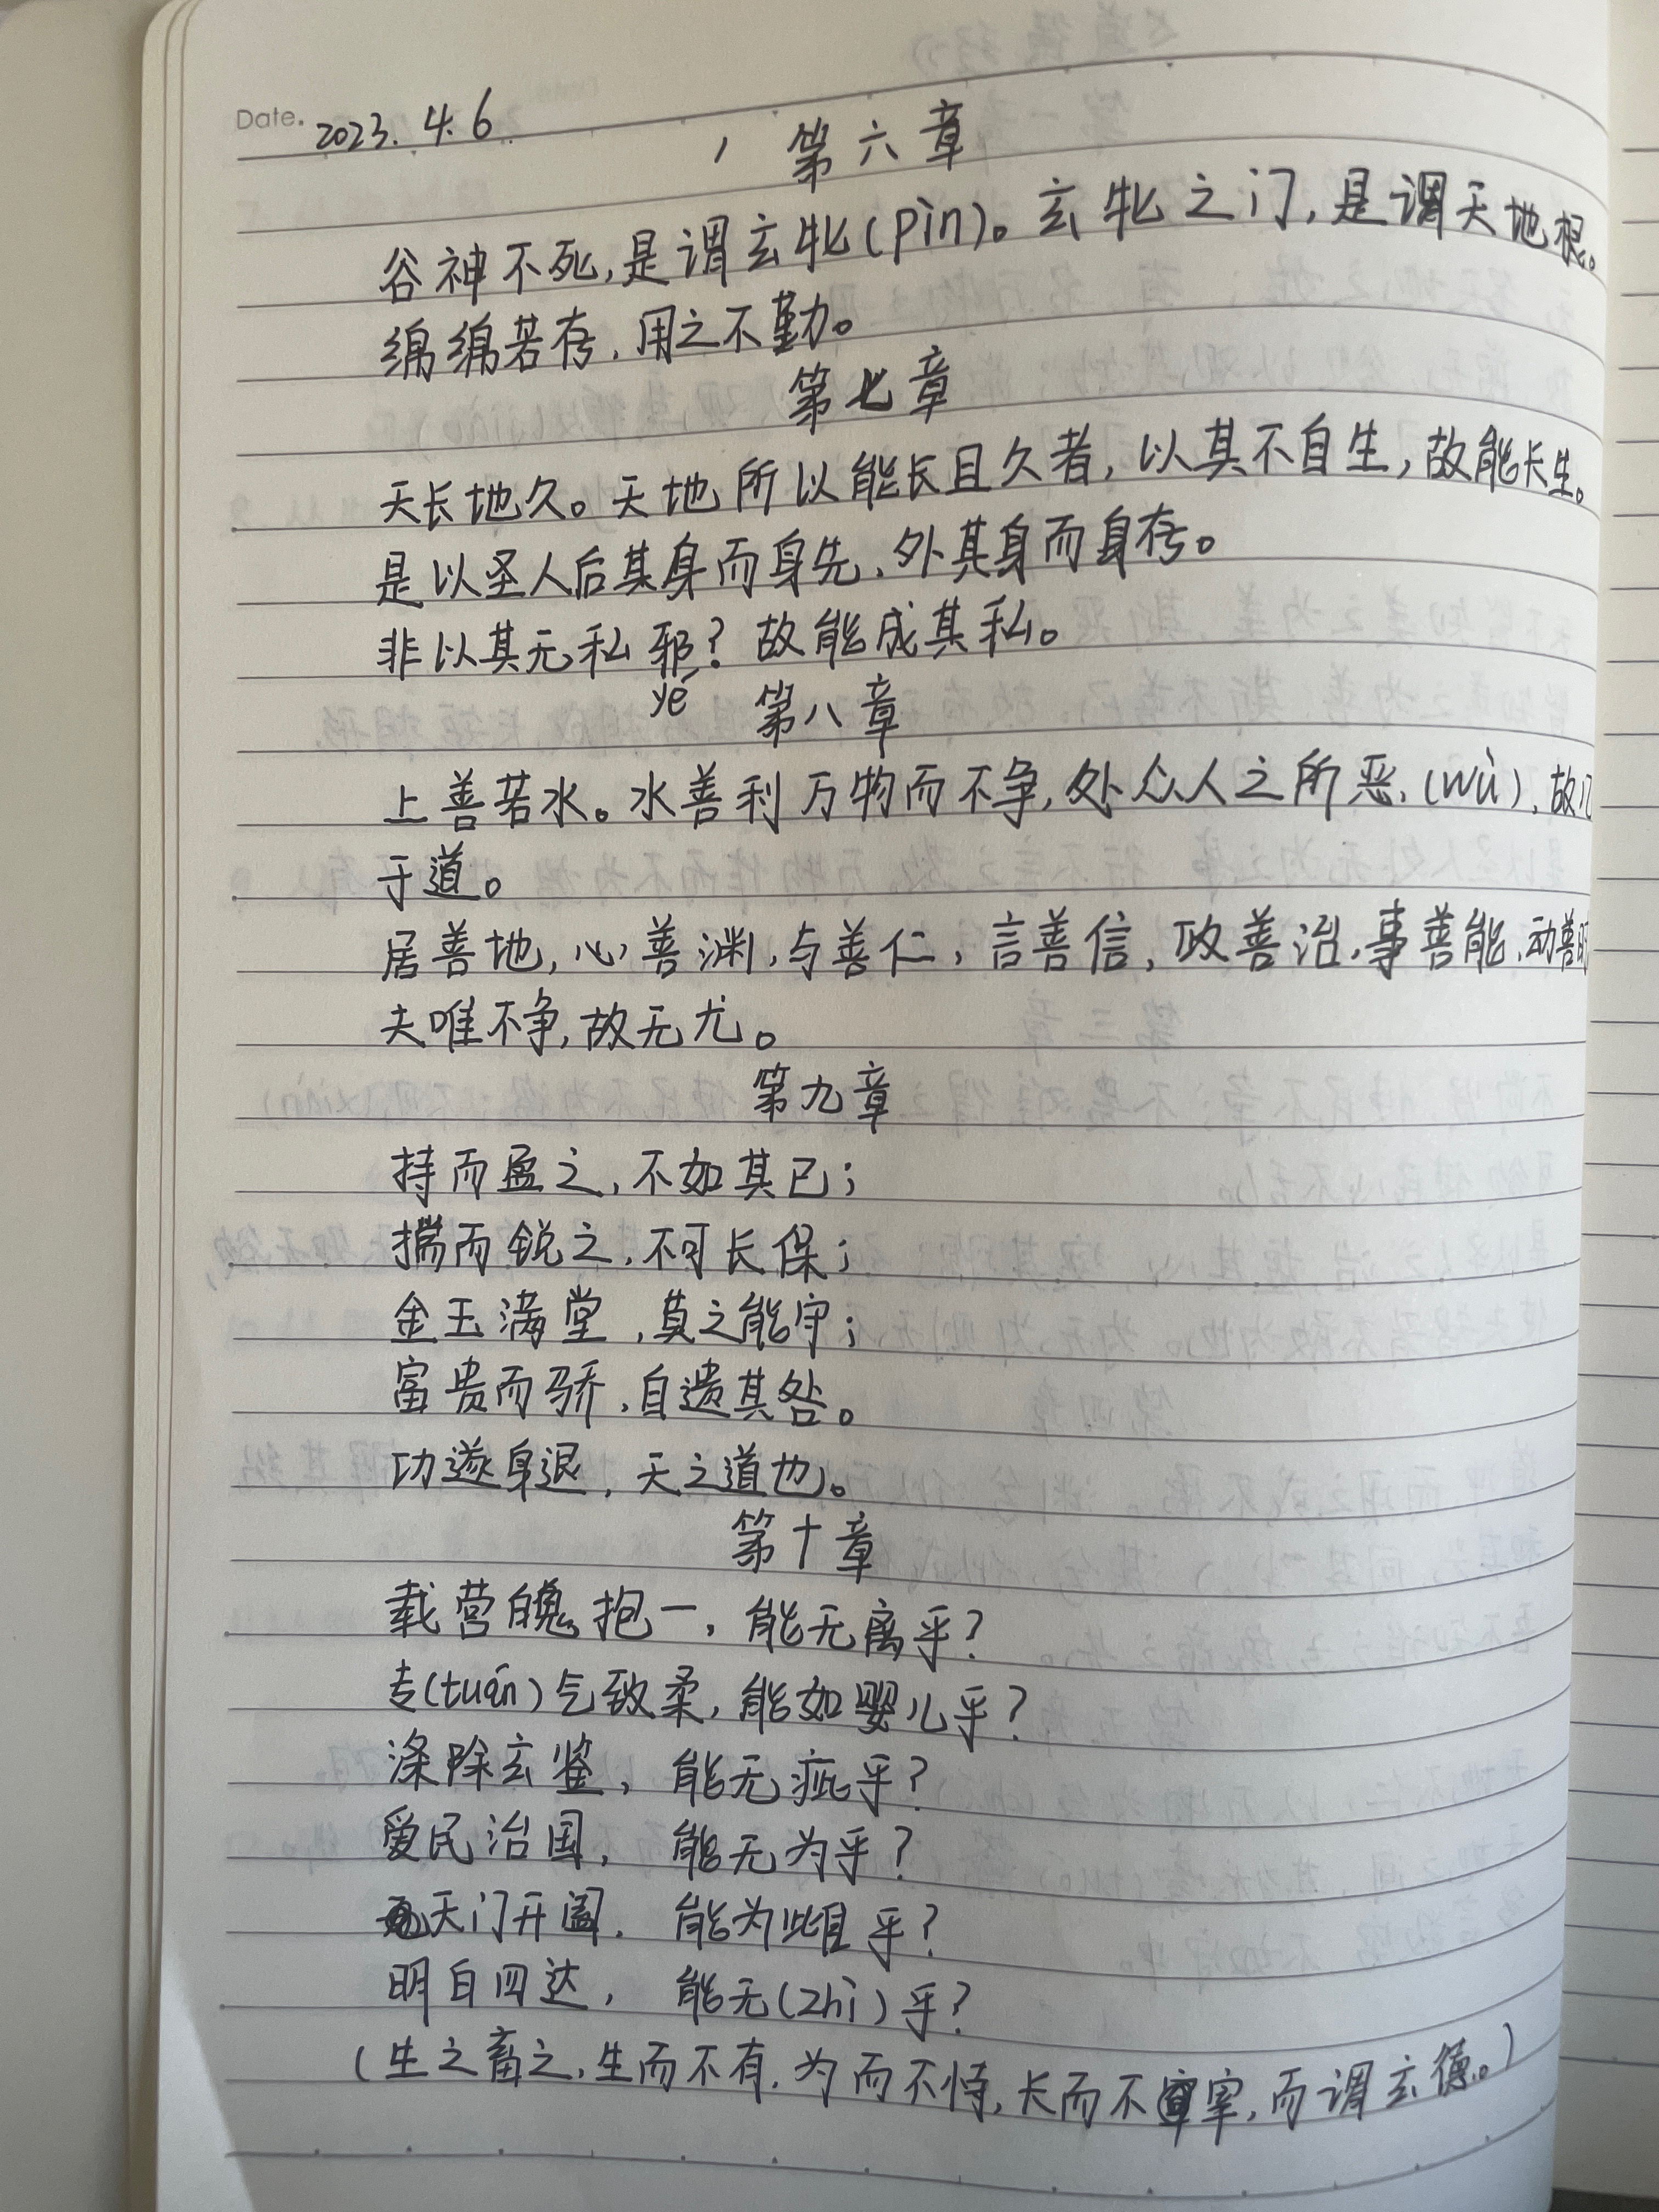 Date. 2023.4.6
第六章
谷神不死,是谓玄牝(pìn)。玄牝之门,是谓天地根。
绵绵若存,用之不勤。
第七章
天长地久。天地所以能长且久者,以其不自生,故能长生。
是以圣人后其身而身先,外其身而身存。
非以其无私邪?故能成其私。
yé
第八章
上善若水。水善利万物而不争,处众人之所恶,(wù),故几
于道。
居善地,心善渊,与善仁,言善信,政善治,事善能,动善时
夫唯不争,故无尤。
第九章
持而盈之,不如其已;
揣而锐之,不可长保;
金玉满堂,莫之能守;
富贵而骄,自遗其咎。
功遂身退,天之道也。
第十章
载营魄抱一,能无离乎?
专(tuán)气致柔,能如婴儿乎?
涤除玄鉴,能无疵乎?
爱民治国,能无为乎?
天门开阖,能为雌乎?
明白四达,能无(zhī)乎?
(生之畜之,生而不有,为而不恃,长而不宰,而谓玄德。)